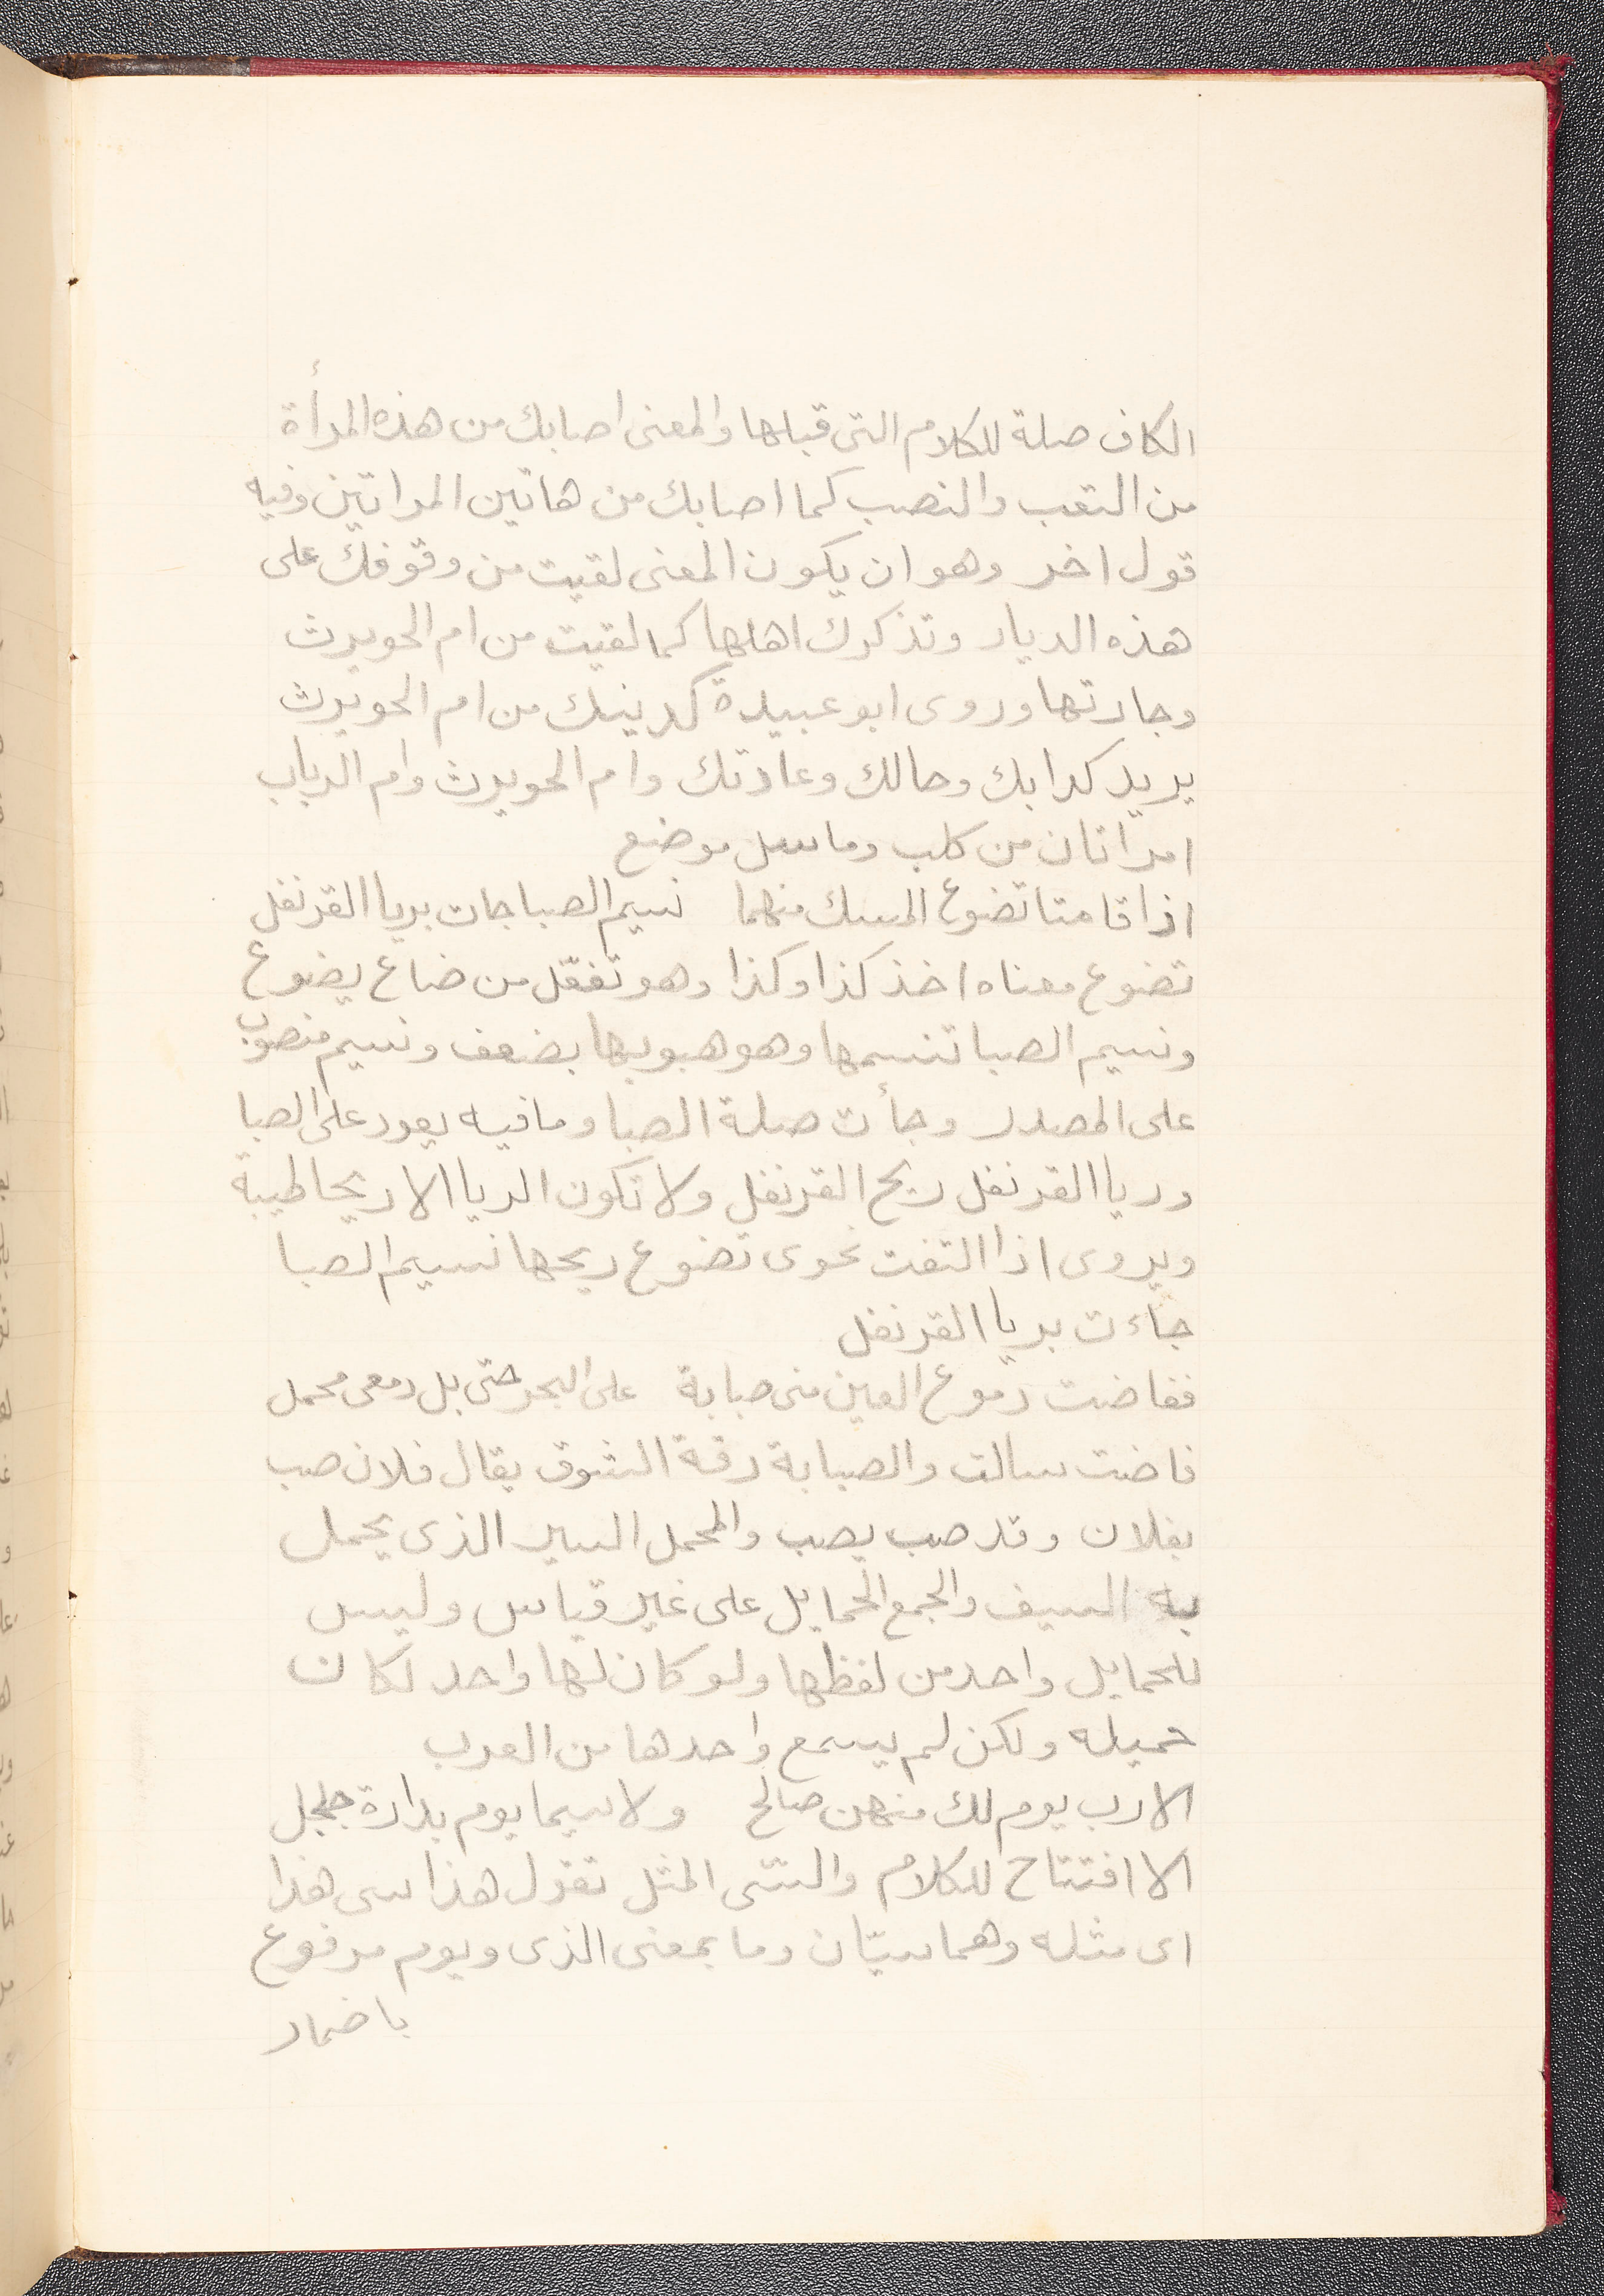 الكاف صلة للكلام التى قبلها والمعنى اصابك من هذه المرأة
من التعب والنصب كما اصابك من هاتين المراتين وفيه
قول اخر وهو ان يكون المعنى لقيت من وقوفك على
هذه الديار وتذكرك اهلها كما لقيت من ام الحويرث
وجارتها وروى ابو عبيدة كدينك من ام الحويرث
يريد كدابك وحالك وعادتك وام الحويرث وام الرباب
امراتان من كلب وماسل موضع
اذا قامتا تضوع المسك منهما نسيم الصبا جات بريا القرنفل
تضوع معناه اخذ كذا وكذا وهو تفعّل من ضاع يضوع
ونسيم الصبا تنسمها وهو هبوبها بضعف ونسيم منصوب
على المصدر وجأت صلة الصبا وما فيه يعود على الصبا
وريا القرنفل ريح القرنفل ولا تكون الريا الا ريحا طيبة
ويروى اذا التفت نحوى تضوع ريحها نسيم الصبا
جاءت بريا القرنفل
ففاضت دموع العين منى صبابة على النحر حتى بل دمعى محمل
فاضت سالت والصبابة رقة الشوق يقال فلان صب
بفلان وقد صب يصب والمحمل السير الذى يحمل
به السيف والجمع الحمايل على غير قياس وليس
للحمايل واحد من لفظها ولو كان لها واحد لكان
حميله ولكن لم يسمع واحدها من العرب
الا رب يوم لك منهن صالح ولا سيما يوم بدارة جلجل
الا افتتاح للكلام والسى المثل تقول هذا سى هذا
اى مثله وهما سيّان وما بمعنى الذى ويوم مرفوع
باضمار